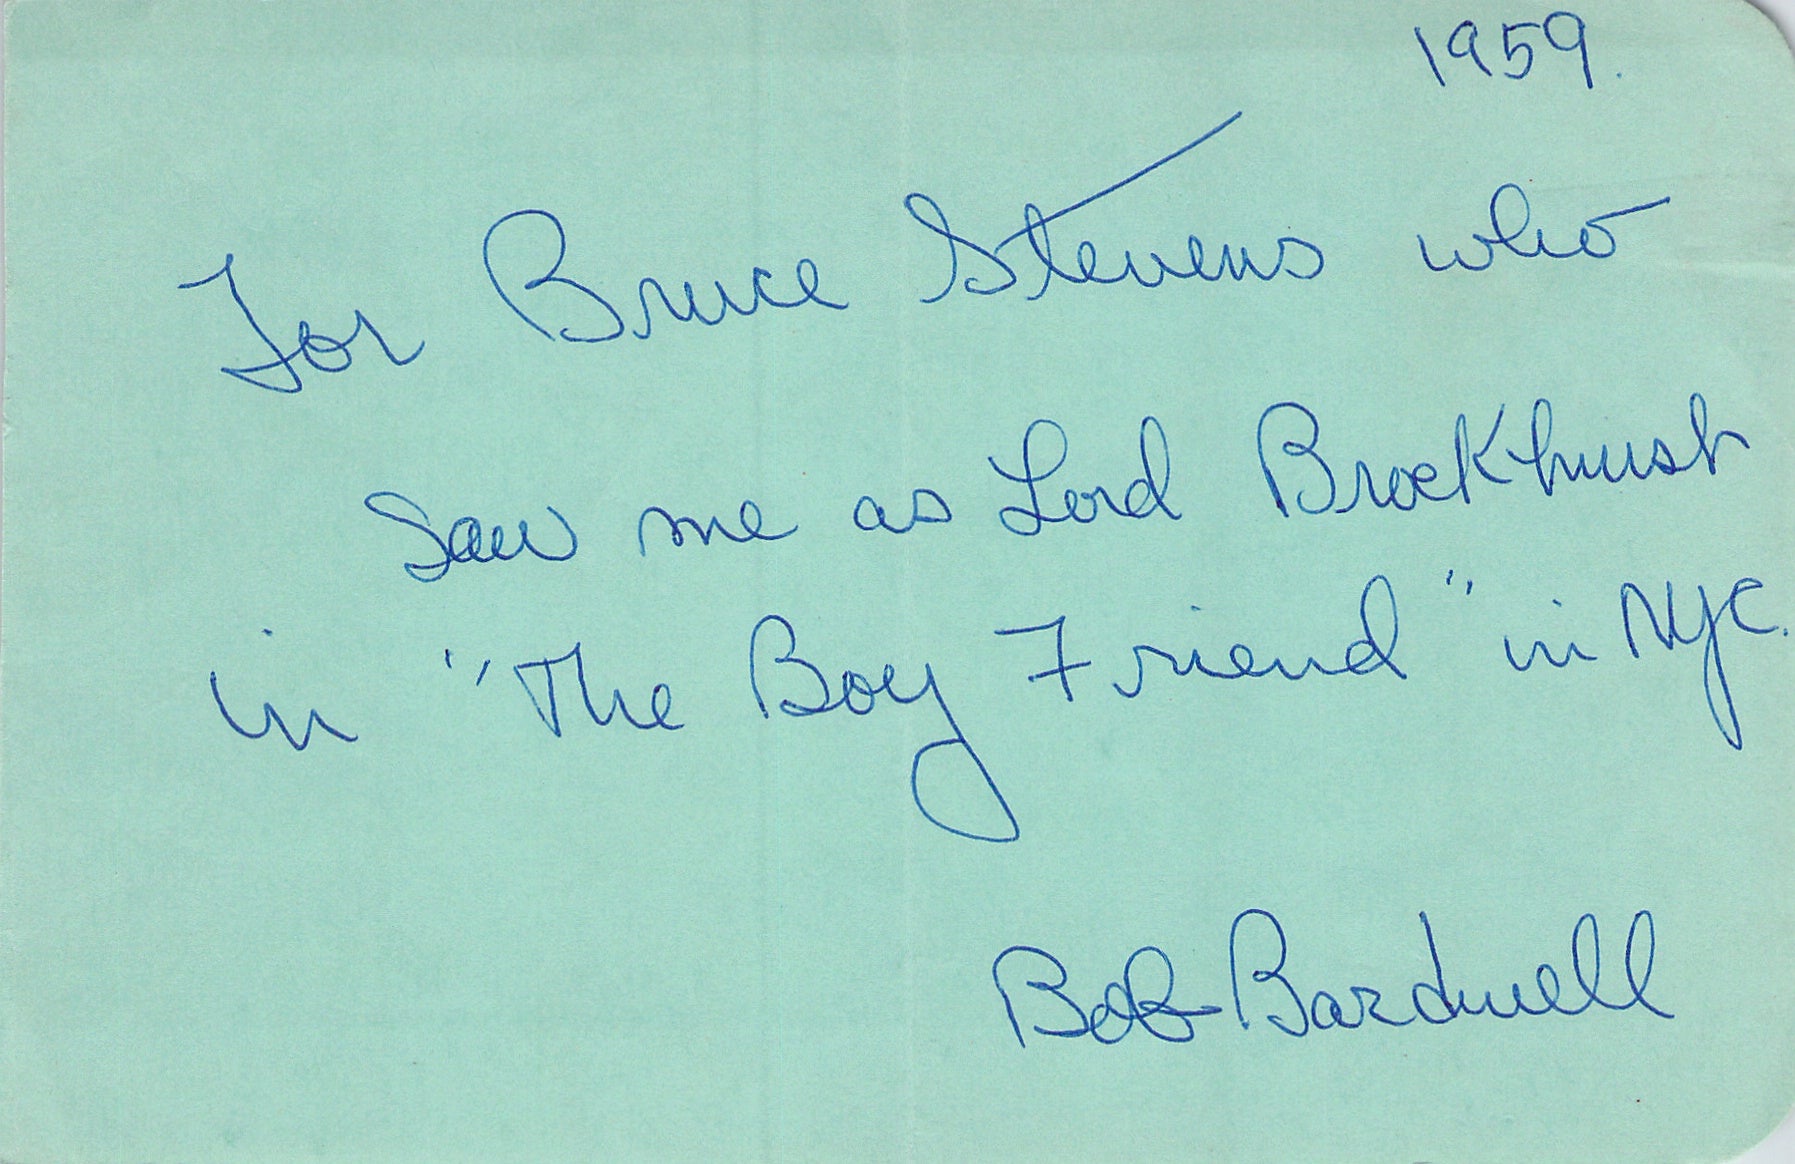 1959.
For Bruce Stevens who
saw me as Lord Brockhurst
in "The Boy Friend" in NYC.
Bob Bardwell